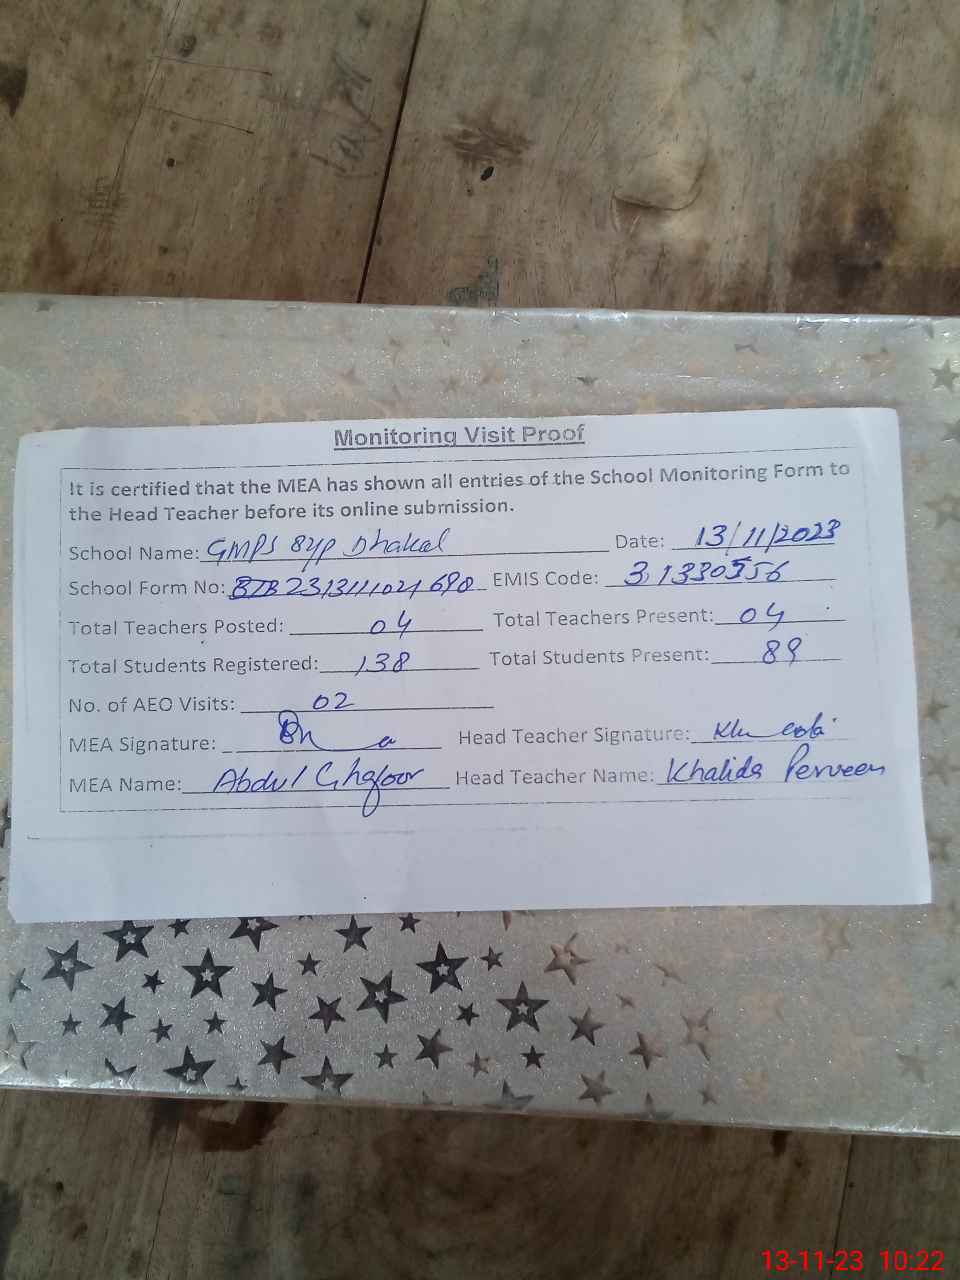 Monitoring Visit Proof
It is certified that the MEA has shown all entries of the School Monitoring Form to
the Head Teacher before its online submission.
School Name: GMPS 84P Dhakal Date: 13/11/2023
School Form No: BTB 2313111021690 EMIS Code: 31330556
Total Teachers Posted: 04 Total Teachers Present: 04
Total Students Registered: 138 Total Students Present: 89
No. of AEO Visits: 02
MEA Signature: Head Teacher Signature:
MEA Name: Abdul Ghafoor Head Teacher Name: Khalida Perveen
13-11-23 10:22